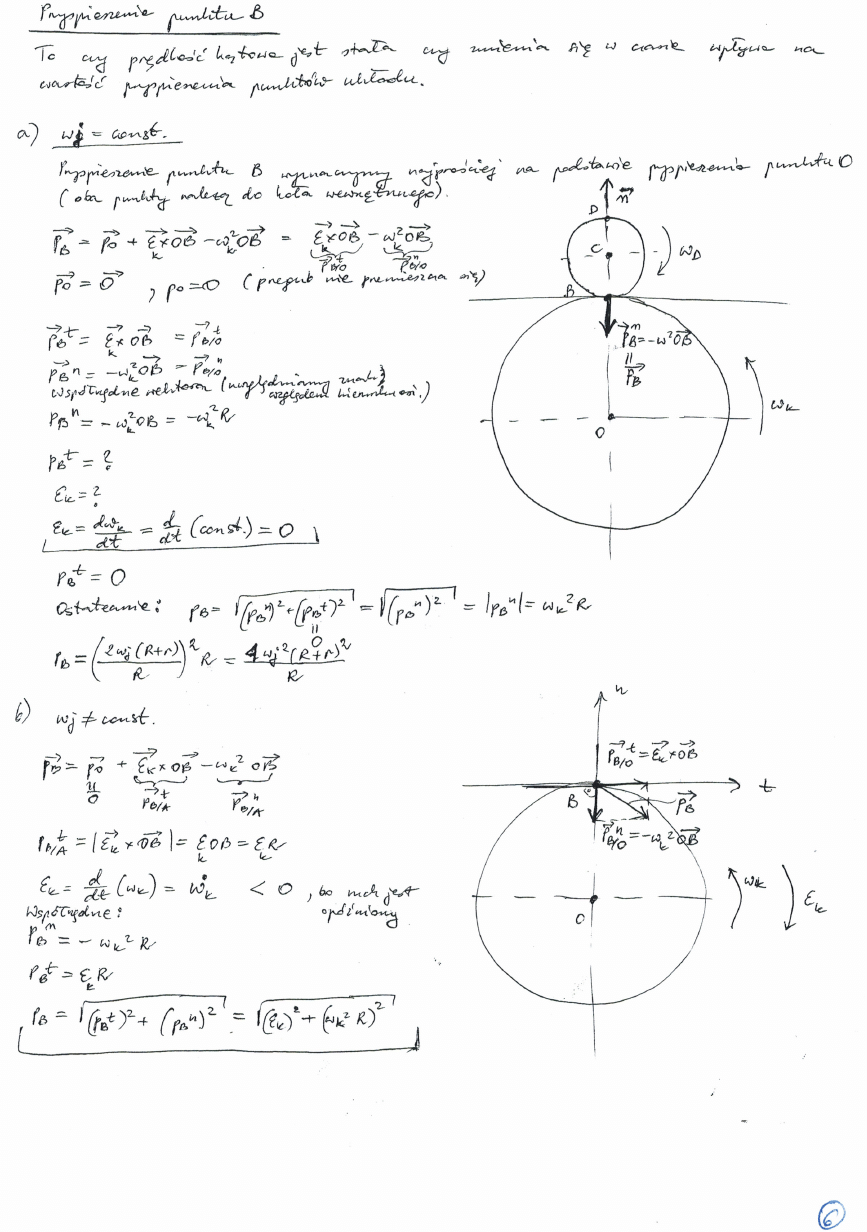 Przyspieszenie punktu B
To czy prędkość kątowa jest stała czy zmienia się w czasie wpływa na
wartość przyspieszenia punktów układu.
a) ωj = const.
Przyspieszenie punktu B wyznaczymy najprościej na podstawie przyspieszenia punktu O
(oba punkty należą do koła wewnętrznego).
p⃗B = p⃗O + ε⃗k×OB⃗ − ωk²OB⃗ = ε⃗k×OB⃗ − ωk²OB⃗
p⃗B/Oᵗ p⃗B/Oⁿ
p⃗O = 0⃗ , pO = 0 (przegub nie przemieszcza się)
p⃗Bᵗ = ε⃗k×OB⃗ = p⃗B/Oᵗ
p⃗Bⁿ = −ωk²OB⃗ = p⃗B/Oⁿ
Współrzędne wektora (uwzględniamy znaki
względem kierunku osi.)
pBⁿ = −ωk²OB = −ωk²R
pBᵗ = ?
εk = ?
εk = dωk/dt = d/dt (const.) = 0
pBᵗ = 0
Ostatecznie: pB = √((pBⁿ)² + (pBᵗ)²) = √((pBⁿ)²) = |pBⁿ| = ωk²R
0
pB = (2ωj(R+r)/R)² R = 4ωj²(R+r)²/R
n⃗
D
C
ωD
B
p⃗Bⁿ = −ω²OB⃗
=
p⃗B
O
ωk
b) ωj ≠ const.
p⃗B = p⃗O + ε⃗k×OB⃗ − ωk² OB⃗
0 p⃗B/Aᵗ p⃗B/Aⁿ
pB/Aᵗ = |ε⃗k×OB⃗| = εk OB = εk R
εk = d/dt (ωk) = ω̇k < 0 , bo ruch jest
opóźniony
Współrzędne:
pBⁿ = −ωk² R
pBᵗ = εk R
pB = √((pBᵗ)² + (pBⁿ)²) = √((εk)² + (ωk² R)²)
n
p⃗B/Oᵗ = ε⃗k×OB⃗
t
B
p⃗B
p⃗B/Oⁿ = −ωk²OB⃗
O
ωk
εk
6